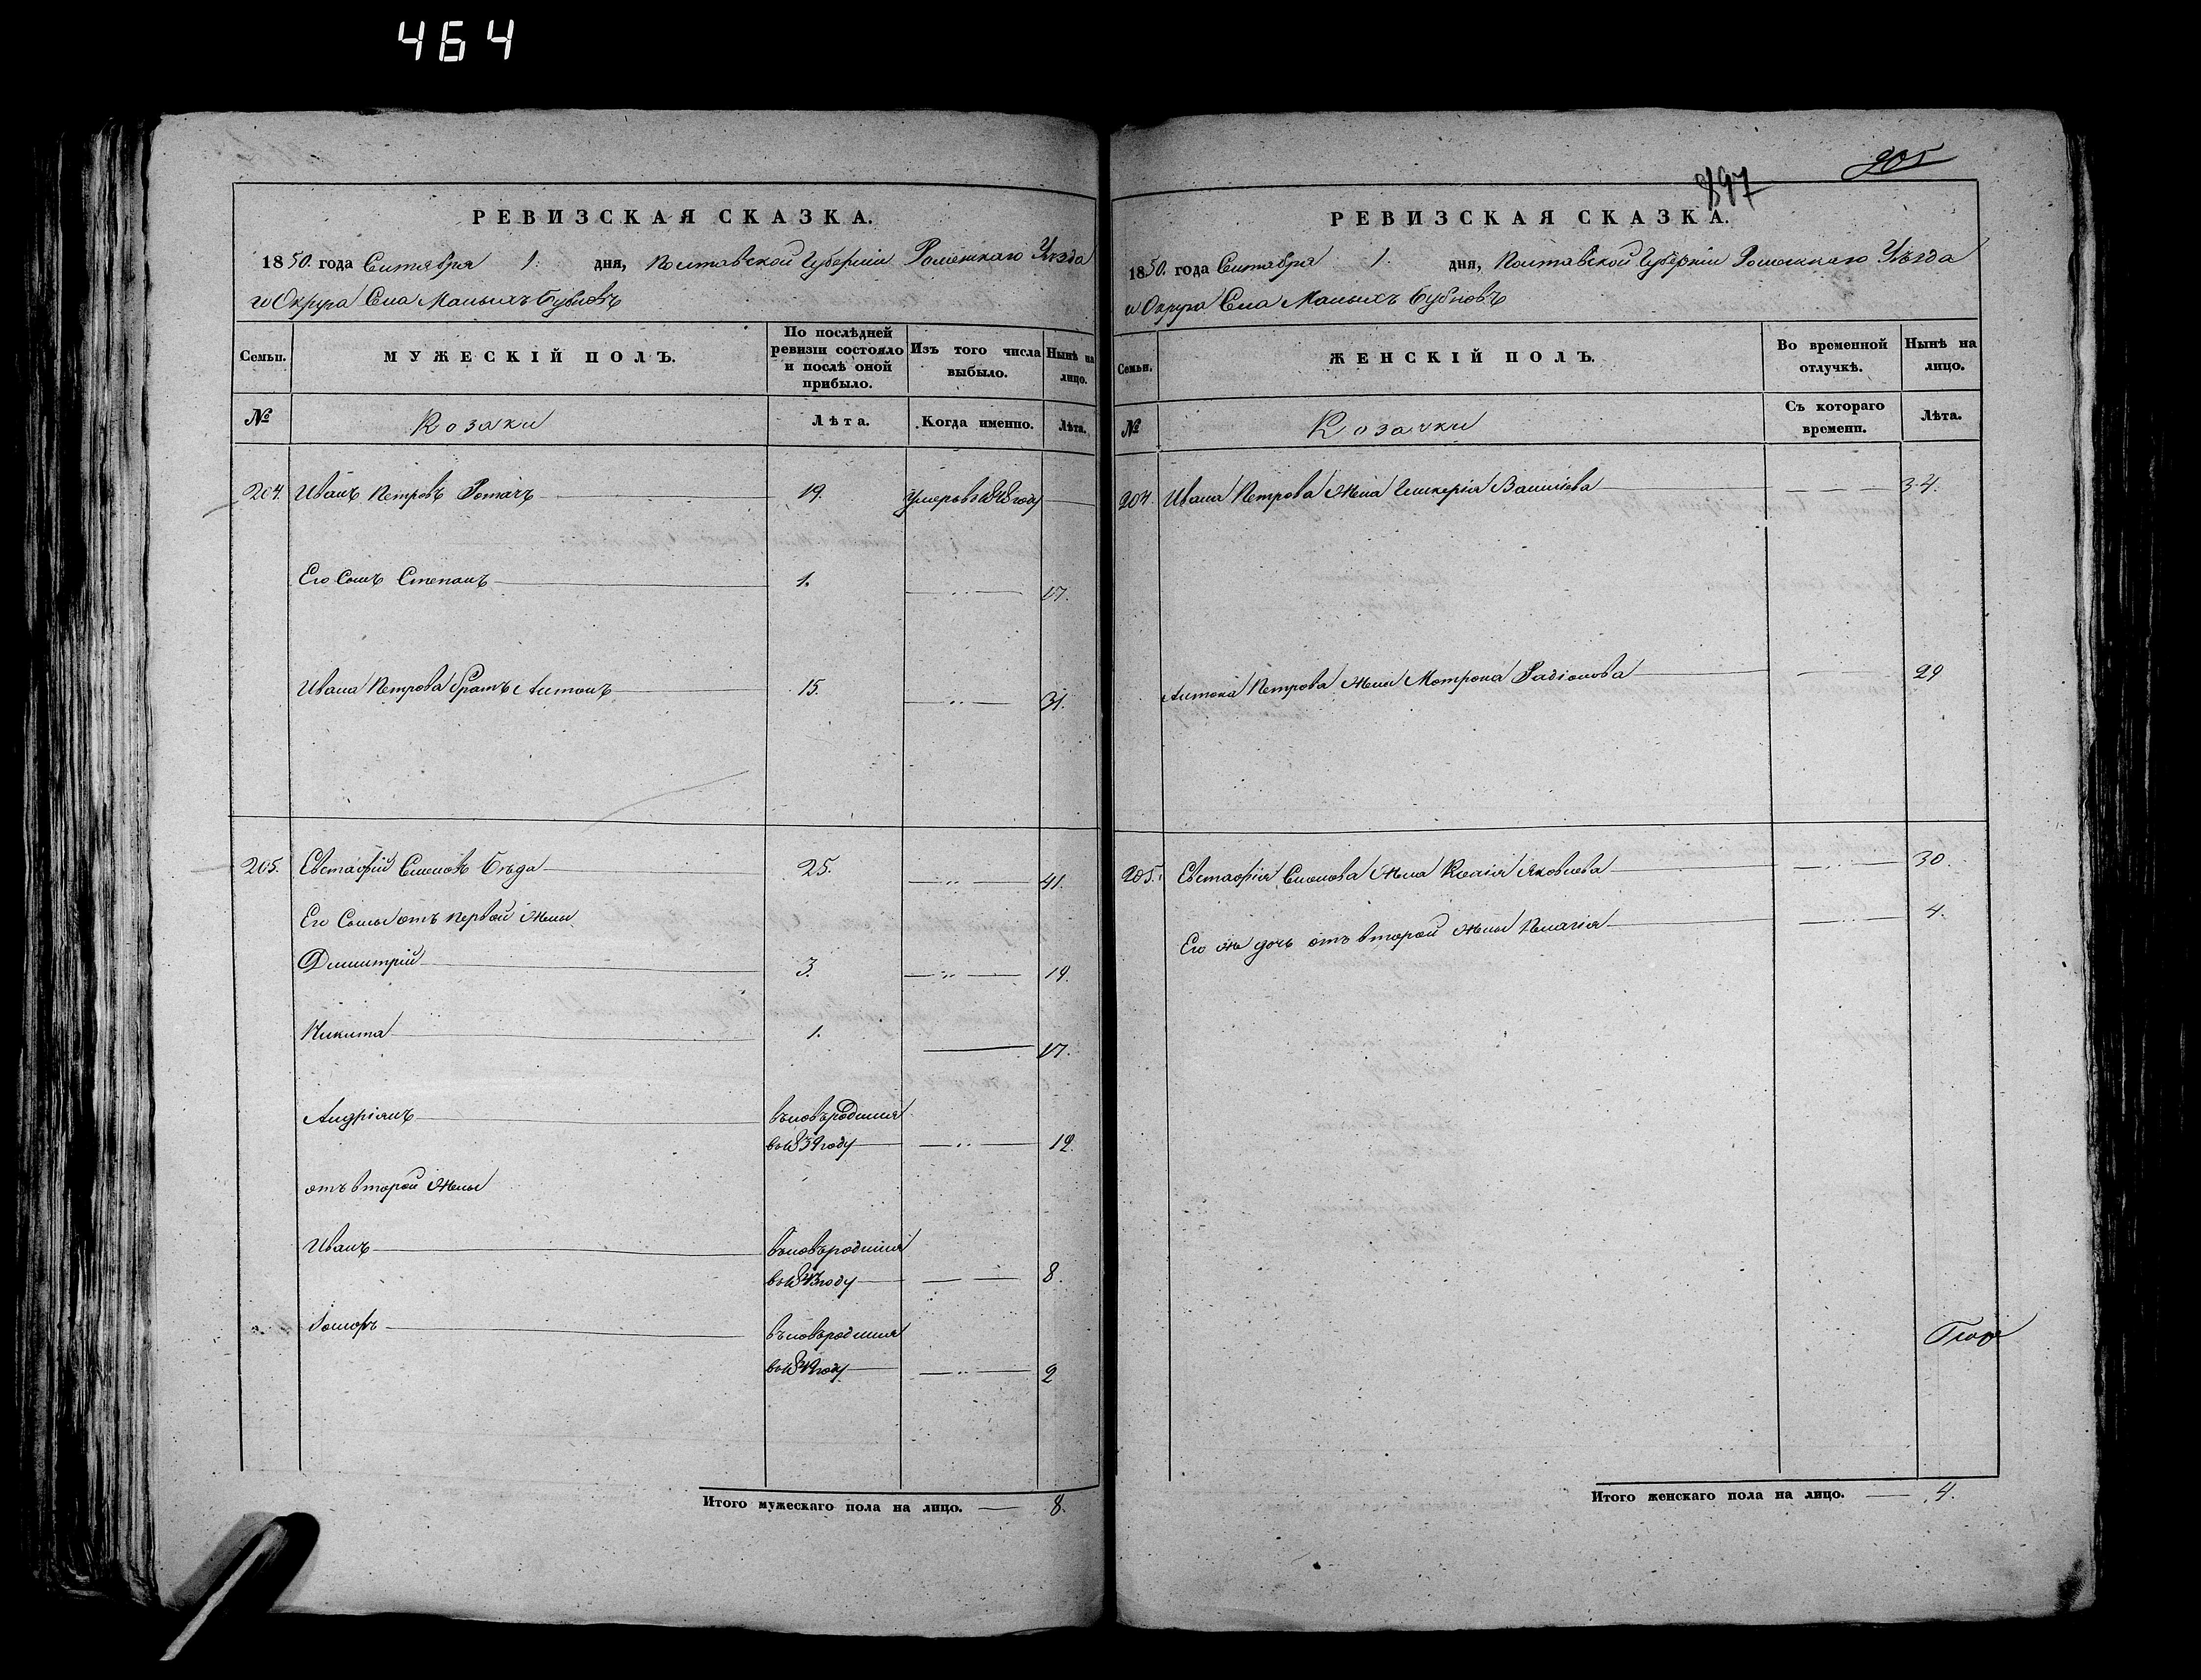 464
РЕВИЗСКАЯ СКАЗКА.
1850. года Сентября 1. дня, Полтавской Губернии Роменскаго Уѣзда
и Округа Села Малыхъ Бубновъ
Семьи. МУЖЕСКІЙ ПОЛЪ. По послѣдней ревизіи состояло и послѣ оной прибыло. Изъ того числа выбыло. Нынѣ на лицо.
№ Козаки Лѣта. Когда именно. Лѣта.
204. Иванъ Петровъ 19. Умеръ в 1848 году
Его Сынъ Степанъ 1. 17.
Ивана Петрова братъ Антонъ 15. 31.
205. Евстафій Семеновъ Бѣда 25. 41.
Его Сыны отъ первой жены
Димитрій 3. 19.
Никита 1. 17.
Андріянъ вновьродился
въ 1839 году 12.
отъ второй жены
Иванъ вновьродился
въ 1843 году 8.
вновьродился
въ 1849 году 2
Итого мужескаго пола на лицо. 8.
897
905
РЕВИЗСКАЯ СКАЗКА.
1850. года Сентября 1. дня, Полтавской Губерніи Роменскаго Уѣзда
и Округа Села Малыхъ Бубновъ
Семьи. ЖЕНСКІЙ ПОЛЪ. Во временной отлучкѣ. Нынѣ на лицо.
№ Козачки Съ котораго времени. Лѣта.
204. Ивана Петрова жена Гликерія Василіева 34.
Антона Петрова жена Мотрона Радіонова 29
205. Евстафія Семенова жена Ксенія Яковлева 30.
Его же дочь отъ второй жены Пелагія 4.
Итого женскаго пола на лицо. 4.